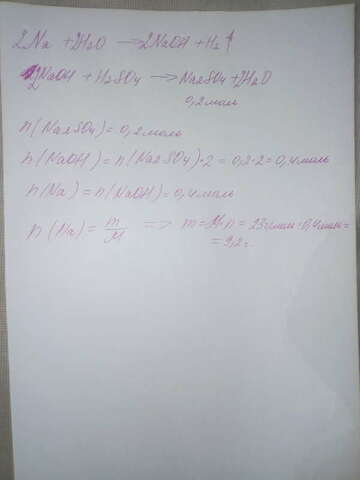 2Na + 2H2O → 2NaOH + H2↑
2NaOH + H2SO4 → Na2SO4 + 2H2O
0,2 моль
n(Na2SO4) = 0,2 моль
n(NaOH) = n(Na2SO4)·2 = 0,2·2 = 0,4 моль
n(Na) = n(NaOH) = 0,4 моль
n(Na) = m/M => m = M·n = 23 г/моль·0,4 моль =
= 9,2 г.